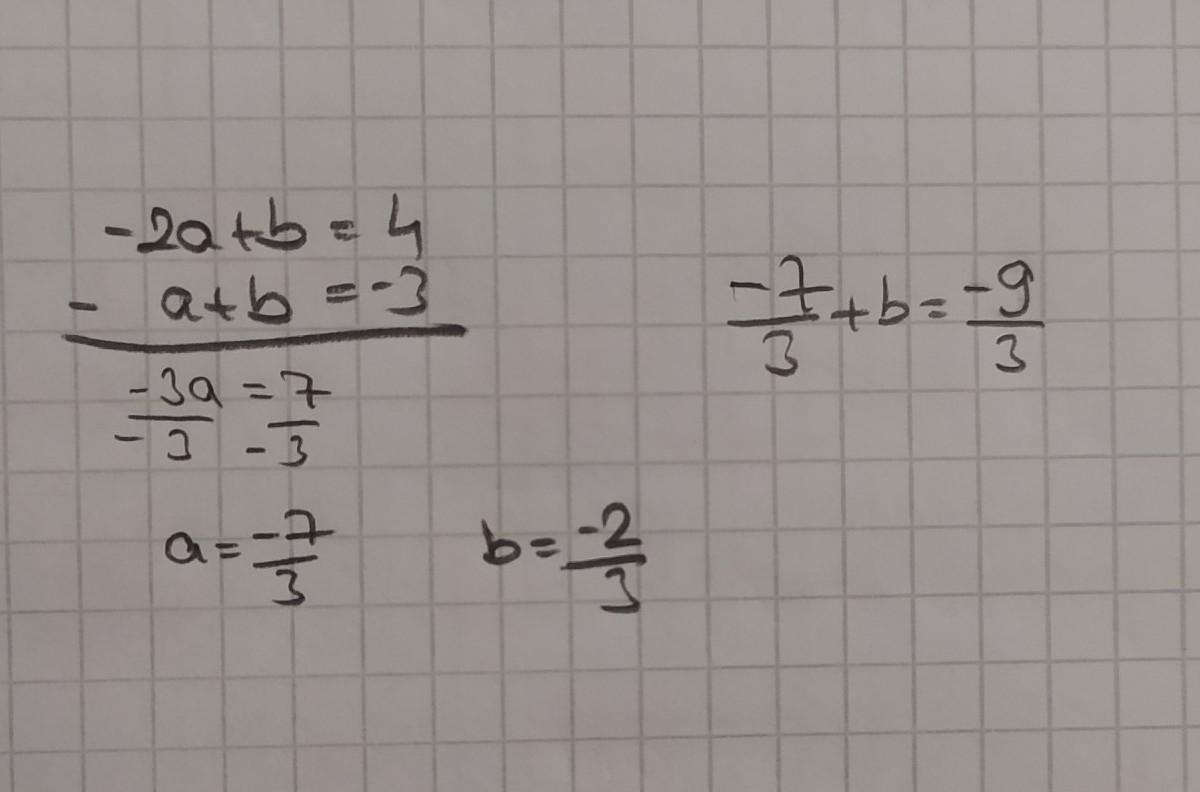 -2a+b = 4
- a+b = -3
-3a/-3 = 7/-3
-7/3 + b = -9/3
a = -7/3
b = -2/3